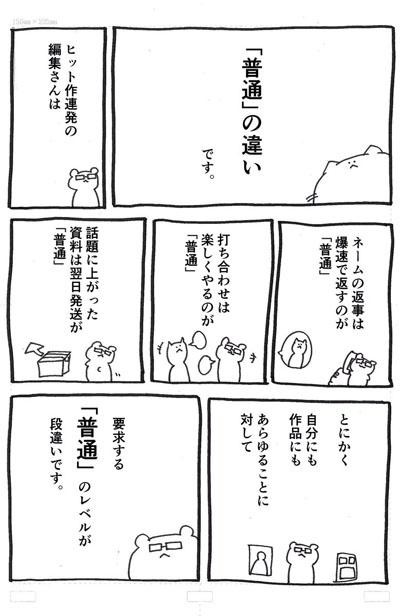 「普通」の違い
です。
ヒット作連発の
編集さんは
ネームの返事は
爆速で返すのが
「普通」
打ち合わせは
楽しくやるのが
「普通」
話題に上がった
資料は翌日発送が
「普通」
とにかく
自分にも
作品にも
あらゆることに
対して
要求する
「普通」のレベルが
段違いです。